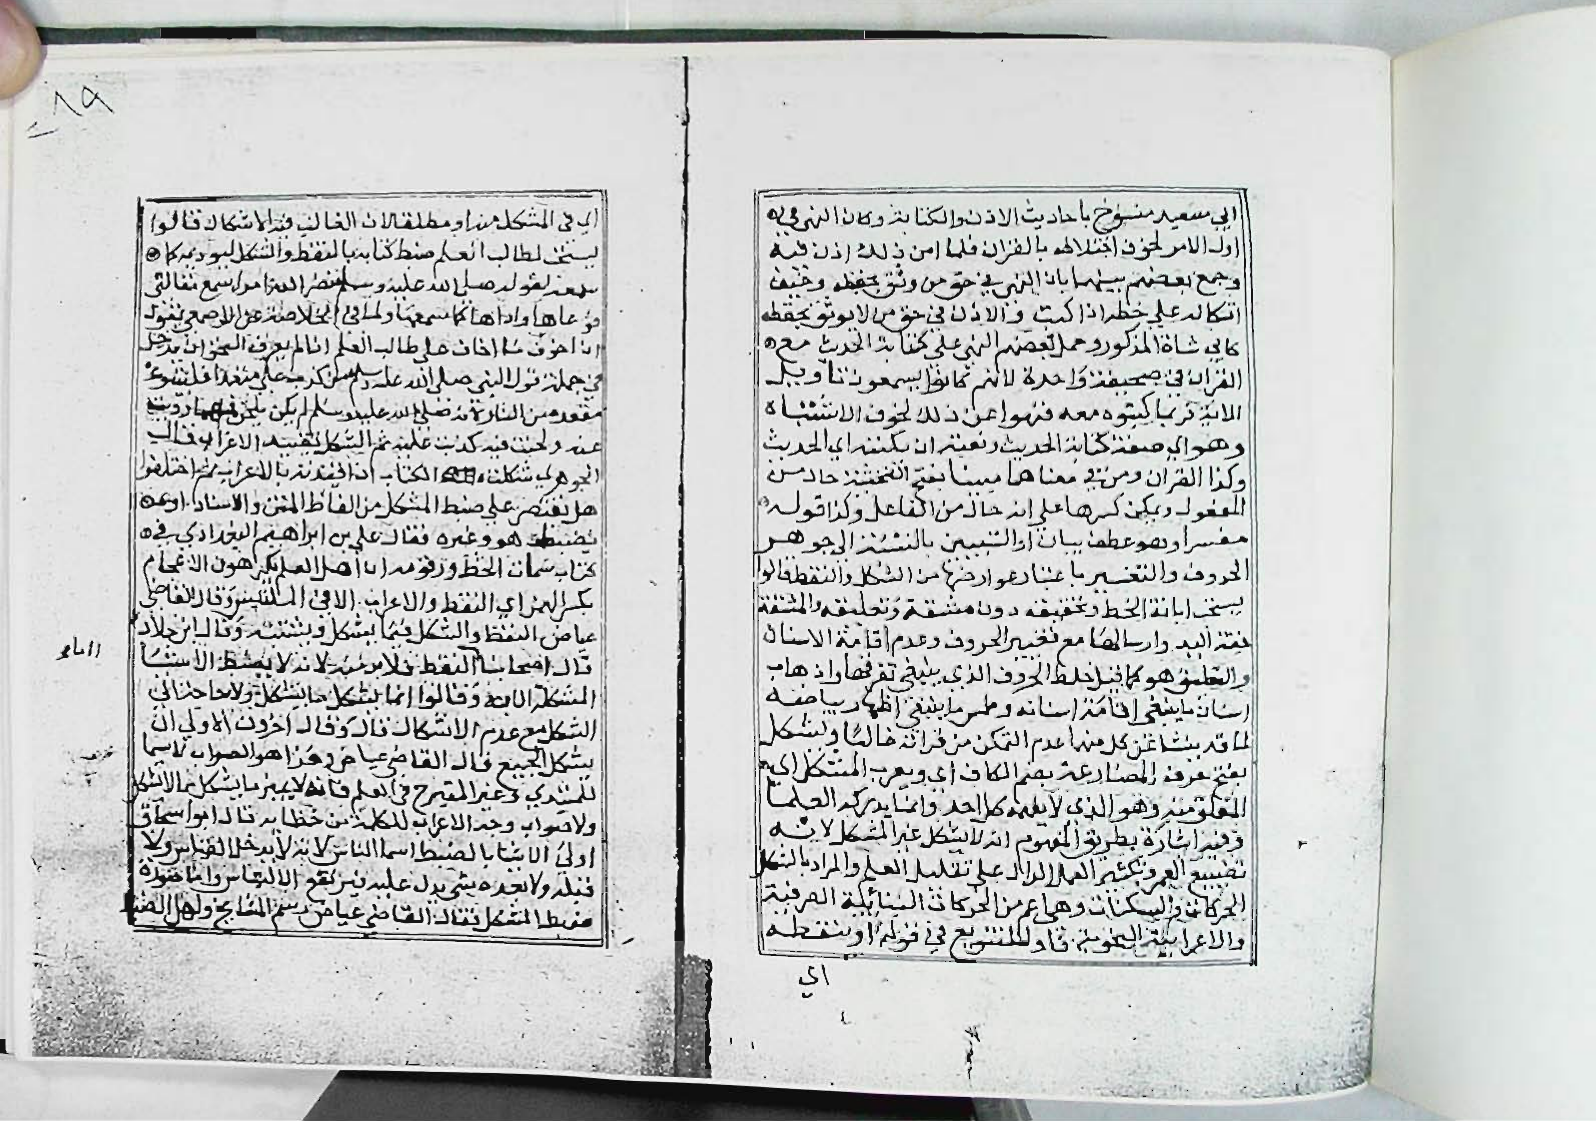 ابي سعيد منسوخ باحاديث الاذن والكتابة وكان النهي في
اول الامر لخوف اختلاطه بالقران فلما امن ذلك اذن فيه
وجمع بعضهم بينهما بان النهي في حق من وثق بحفظه وخيف
اتكاله علي خطه اذا كتب والاذن في حق من لا يوثق بحفظه
كابي شاة المذكور وحمل بعضهم النهي علي كتابة الحديث مع
القران في صحيفة واحدة لانهم كانوا يسمعون تاويل
الاية فربما كتبوه معه فنهوا عن ذلك لخوف الاشتباه
وهو اي صفة كتابة الحديث ونعته ان يكتبه اي الحديث
وكذا القران ومن في معناهما مبينا بفتح التحتية حال من
المفعول ويمكن كسرها علي انه حال من الفاعل وكذا قوله
مفسرا وهو عطف بيان او التبيين بالنسبة الي جوهر
الحروف والتفسير باعتبار عوارضها من الشكل والنقط قالوا
يستحب ابانة الخط وتحقيقه دون مشقة وتعليقه والمشقة
خفة اليد وارسالها مع تغيير الحروف وعدم اقامة الاسنان
والتعليق هو كما قيل خلط الحروف الذي ينبغي تفرقها واذهاب
اسنان ما ينبغي اقامة اسنانه وطمس ما ينبغي اظهار بياضه
لما قد ينشا عن كل منها عدم التمكن من قرائته غالبا ويشكل
بفتح حرف المضارعة بضم الكاف اي ويعرب المشكل اي
المغلق منه وهو الذي لا يفهمه كل احد وانما يدركه العلما
وفيه اشارة بطريق المفهوم انه لا يشكل غير المشكل لانه
تضييع العمر وتكثير العمل الدال علي تقليل العلم والمراد بالشكل
الحركات والسكنات وهي اعم من الحركات البنائية الصرفية
والاعرابية النحوية فاو للتنويع في قوله او ينقطه
اي
٨٩
اي في المشكل منه او مطلقا لان الغالب فيه الاشكال قالوا
يستحب لطالب العلم ضبط كتابه بالنقط والشكل ليوديه كما
سمعه لقوله صلي الله عليه وسلم نضر الله امرا سمع مقالتي
فوعاها واداها كما سمعها ولما في الخلاصة عن الاصمعي يقول
ان اخوف ما اخاف علي طالب العلم اذا لم يعرف النحو ان يدخل
في جملة قول النبي صلي الله عليه وسلم من كذب علي متعمدا فليتبوء
مقعده من النار لانه صلي الله عليه وسلم لم يكن يلحن فمهما رويت
عنه ولحنت فيه كذبت عليه ثم الشكل تقييد الاعراب قال
الجوهري شكلت الكتاب اذا قيدته بالاعراب ثم اختلفوا
هل يقتصر علي ضبط المشكل من الفاظ المتن والاسناد او
يضبط هو وغيره فقال علي بن ابراهيم البغدادي في
كتاب سمات الخط ورقومه ان اهل العلم يكرهون الاعجام
بكسر الهمز اي النقط والاعراب الا في الملتبس وقال القاضي
عياض النقط والشكل فيما يشكل ويشتبه وقال ابن خلاد
قال اصحابنا النقط فلا بد منه لانه لا يضبط الاشيا
المشكلة الا به وقالوا انما يشكل ما يشكل ولا حاجة الي
الشكل مع عدم الاشكال قال وقال اخرون الاولي ان
يشكل الجميع قال القاضي عياض وهذا هو الصواب لا سيما
للمبتدي وغير المتبحر في العلم فانه لا يميز ما يشكل مما لا يشكل
ولا صواب وجه الاعراب للكلمة من خطايه قال ابو اسحاق
اولي الاشيا بالضبط اسما الناس لانه لا يدخل القياس ولا
قبله ولا بعده شي يدل عليه فيرتفع الالتباس واما صورة
ضبط المشكل فقال القاضي عياض رسم المشايخ واهل الضبط